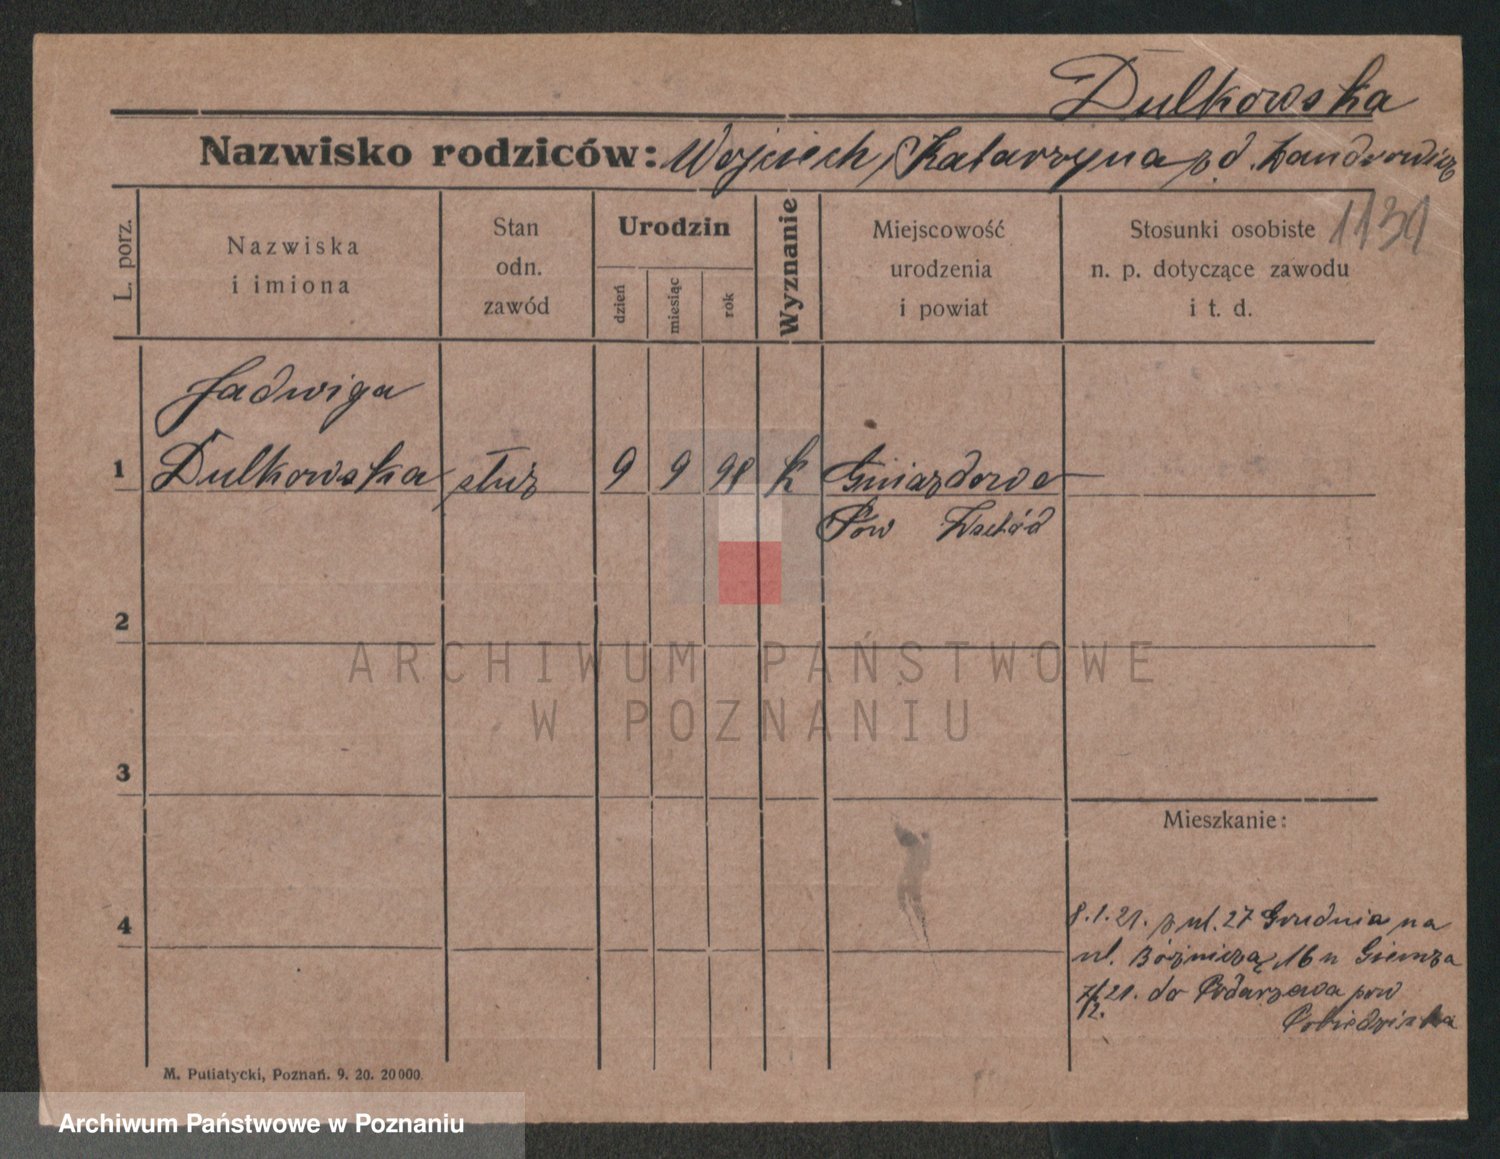 Dulkowska
Nazwisko rodziców: Wojciech, Katarzyna z d.
1131
L. porz.
Nazwiska
i imiona
Stan
odn.
zawód
Urodzin
dzień
miesiąc
rok
Wyznanie
Miejscowość
urodzenia
i powiat
Stosunki osobiste
n. p. dotyczące zawodu
i t. d.
Jadwiga
1 Dulkowska służ 9 9 98 k Gniazdowo
Pow
2
ARCHIWUM PAŃSTWOWE
W POZNANIU
3
Mieszkanie:
4
8.1.21. z ul. 27 Grudnia na
ul. 16 u
21. do pow
M. Putiatycki, Poznań. 9. 20. 20000
Archiwum Państwowe w Poznaniu